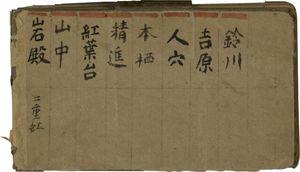 鈴川
吉原
人穴
本栖
精進
紅葉台
山中
岩殿
二重虹